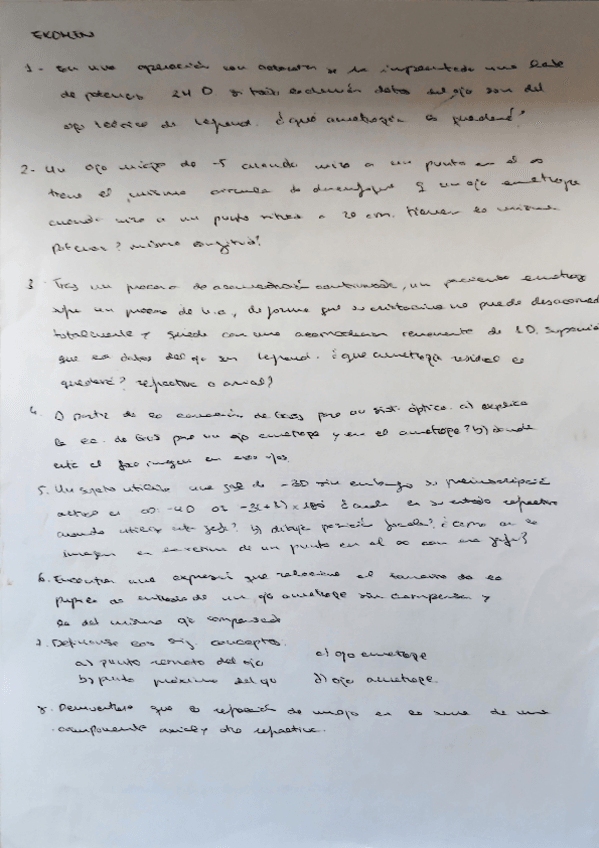 EXAMEN
1- En una operación con cataratas se ha implantado una lente
de potencia 24 D si todos los demás datos del ojo son del
ojo teórico de Legrand. ¿qué ametropía le quedará?
2- Un ojo miope de -5 cuando mira a un punto en el ∞
tiene el mismo círculo de desenfoque q un ojo emétrope
cuando mira a un punto situado a 20 cm. tienen la misma
potencia? misma longitud?
3 Tras un proceso de acomodación continuada, un paciente emétrope
sufre un proceso de de forma que su cristalino no puede
totalmente y queda con una acomodación remanente de 1D.
que los datos del ojo son Legrand. ¿qué ametropía residual le
quedará? refractiva o axial?
4. A partir de la ecuación de Gauss para un sist. óptico. a) explica
la ec. de Gauss para un ojo emétrope y en el amétrope? b) donde
está el foco imagen en esos ojos.
5. Un sujeto utiliza una gafa de -3D sin embargo su
actual es OD: -4D OI -3(+2)x180 ¿cuál es su estado refractivo
cuando utiliza esta gafa? b) dibuja posición focales? ¿cómo es la
imagen en la retina de un punto en el ∞ con esa gafa?
6. Encontrar una expresión que relacione el tamaño de la
pupila de entrada de un ojo amétrope sin compensar y
la del mismo ojo compensado
7. Defínanse los sig conceptos:
a) punto remoto del ojo c) ojo emétrope
b) punto próximo del ojo d) ojo amétrope.
8. Demuéstrese que la refracción de un ojo es la suma de una
componente axial y otra refractiva.